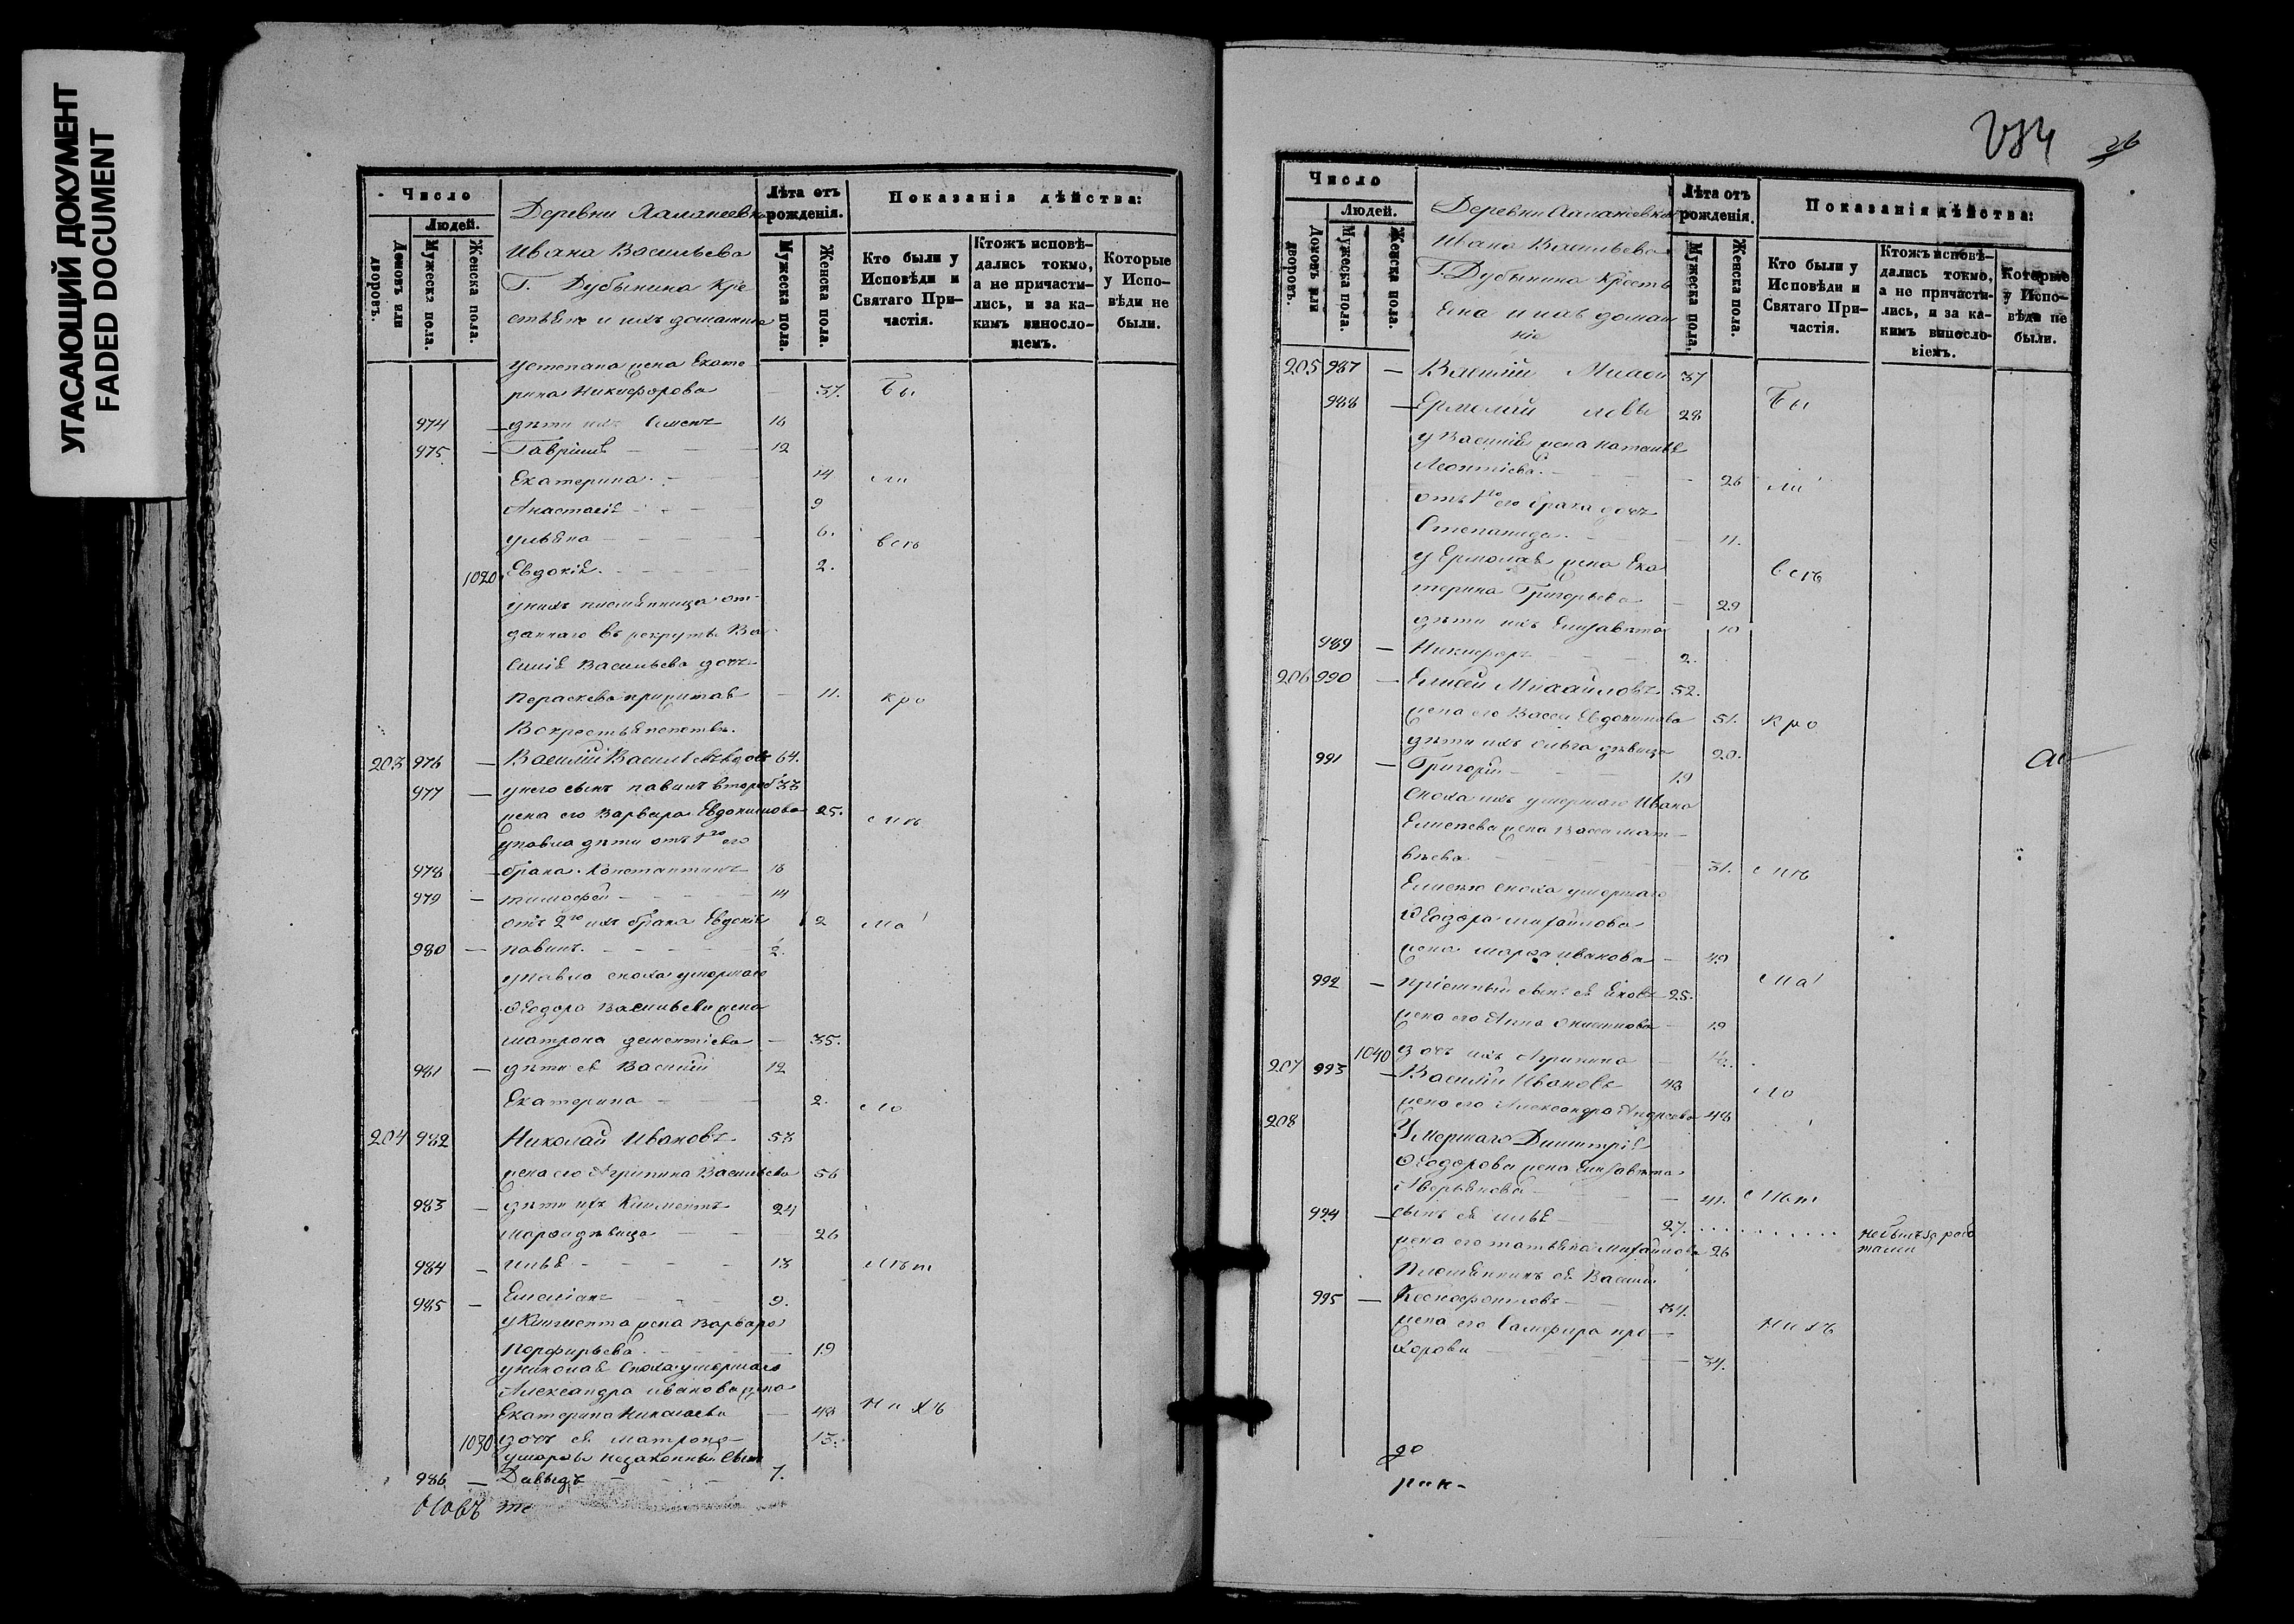 УГАСАЮЩИЙ ДОКУМЕНТ
FADED DOCUMENT
Число
Людей.
Домовъ или дворовъ.
Мужеска пола.
Женска пола.
Деревни
Ивана Васильева
Г. Дубынина Кре
стьяне и ихъ домашніе
Лѣта отъ рожденія.
Мужеска пола.
Женска пола.
Показанія дѣйства:
Кто были у Исповѣди и Святаго При-частія.
Ктожъ исповѣ-дались токмо, а не причасти-лись, и за ка-кимъ винosло-віемъ.
Которые у Испо-вѣди не были.
у Степана жена Екате
рина Никифорова — 37. Бы
974 — дѣти ихъ Семенъ 16
975. — Гавріилъ — 12
Екатерина. — 14 ли
Анастасія — 9
Ульяна — 6. всѣ
1020 Евдокія. — 2.
у нихъ племянница от-
даннаго въ рекруты Ва-
силія Васильева дочь
Параскева — 11. кро
203 976 — Василій Васильевъ вдовъ 64.
977 — у него сынъ Павелъ 33
жена его Варвара Евдокимова 25. мѣ
у Павла дѣти отъ 1го его
978 — брака. Константинъ 16
979 — Тимофей — 14
отъ 2го ихъ брака Евдокія 2 ма
980 — Павелъ. — ½.
у Павла сноха умершаго
Ѳеодора Васильева жена
Матрона Дементіева — 35.
981 — дѣти ея Василій 12
Екатерина — 2. ло
204 982 Николай Ивановъ 58
жена его Агрипина Васильева 56
983 — дѣти ихъ Климентъ 24
Марѳа дѣвица — 26
984 — Илья — 13 лѣт
985 — Емеліанъ — 9.
у Климента жена Варвара
Порфирьева. — 19
у Николая сноха умершаго
Александра Иванова жена
Екатерина Николаева — 48 нихъ
1030 дочь ея Матрона — 13.
незаконный сынъ
986 — Давыдъ — 7.
те
26
Число
Людей.
Домовъ или дворовъ.
Мужеска пола.
Женска пола.
Деревни
Ивана Васильева
Г. Дубынина Кресть
яна и ихъ домаш
ніе
Лѣта отъ рожденія.
Мужеска пола.
Женска пола.
Показанія дѣйства:
Кто были у Исповѣди и Святаго При-частія.
Ктожъ исповѣ-дались токмо, а не причасти-лись, и за ка-кимъ винosло-віемъ.
Которые у Испо-вѣди не были.
205 987 — Василій 37
988 — Ермолай 28 Бы
у Василія жена Наталья
Леонтіева. — 26 ли
отъ 1го его брака дочь
Степанида. — 11.
у Ермолая жена Ека всѣ
терина Григорьева — 29
дѣти ихъ Елизавета 10
989 — Никифоръ — 2.
206 990 — Елисей Михайловъ 52.
жена его Васса Евдокимова 51. кро
дѣти ихъ Ольга дѣвица 20.
991 — Григорій — 19
сноха ихъ умершаго Ивана
Елисеева жена Васса Мат-
вѣева — 31. мѣ
Елисею сноха умершаго
Ѳеодора Михайлова
жена Марѳа Иванова — 49
992 — пріемный сынъ ея Яковъ 25. ма
жена его Анна — 19
1040 дочь ихъ Агрипина — ½.
207 993 — Василій Ивановъ 48 ло
жена его Александра Андреева 48
208 Умершаго Димитрія
Ѳеодорова жена Елизавета
Аверьянова — 41. лѣт
994 — сынъ ея Илья — 27. . . . . . . . . не былъ за рабо
тами
жена его Татьяна Михайлова 26
Племянникъ ея Василій
995 — Ксенофонтовъ — 34.
жена его про — нихъ
хорова — 34.